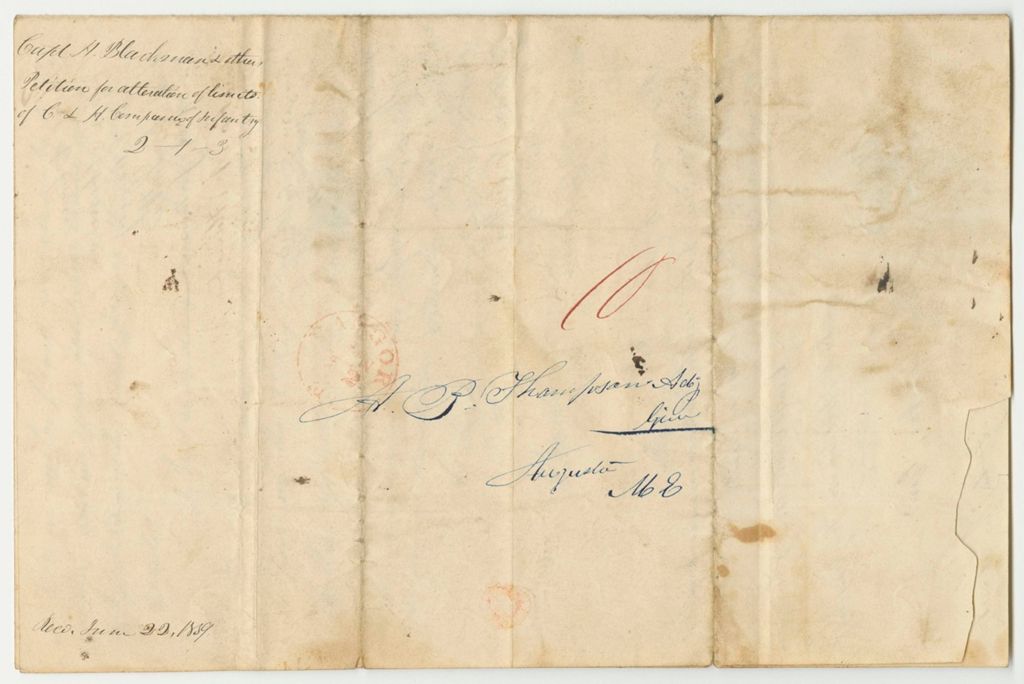 Capt H. Blackman & others
Petition for alteration of limits
of C. & H. Companies of Infantry
2-1-3
10
BANGOR
A. R. Thompson Adj
Gen
Augusta
ME
Recd. June 22, 1839